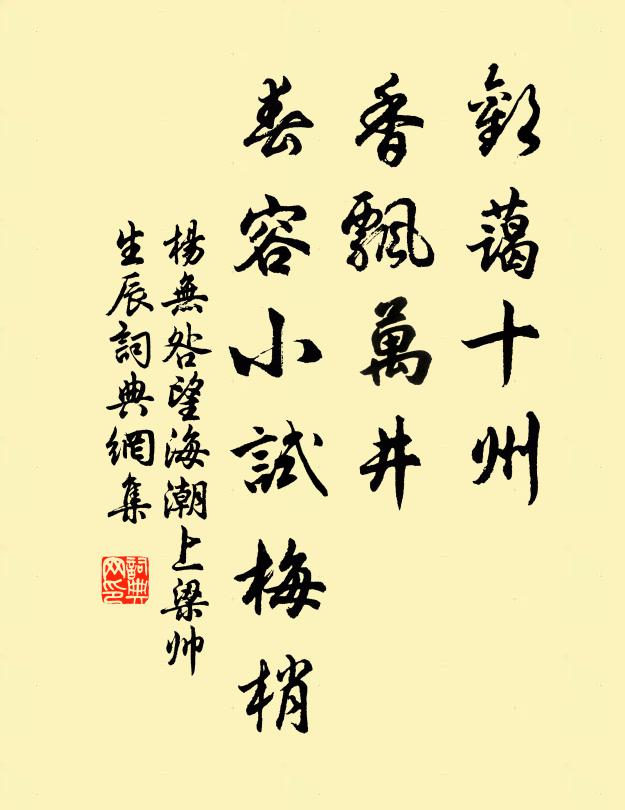 歡藹十州
香飄萬井
春容小試梅梢
楊無咎望海潮上梁帅
生辰詞典網集
詞典
网印